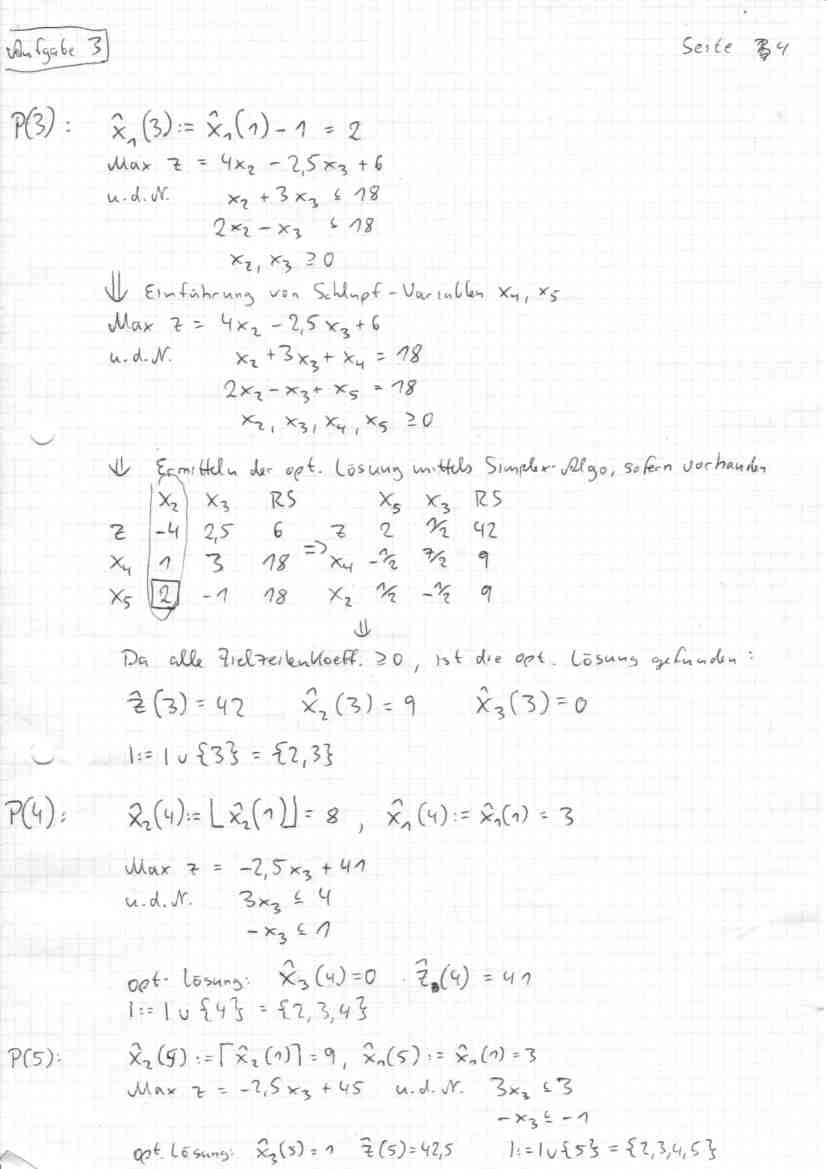 Aufgabe 3
Seite 4
P(3): x̂₁(3) := x̂₁(1) - 1 = 2
Max z = 4x₂ - 2,5x₃ + 6
u.d.N. x₂ + 3x₃ ≤ 18
2x₂ - x₃ ≤ 18
x₂, x₃ ≥ 0
⇓ Einführung von Schlupf-Variablen x₄, x₅
Max z = 4x₂ - 2,5x₃ + 6
u.d.N. x₂ + 3x₃ + x₄ = 18
2x₂ - x₃ + x₅ = 18
x₂, x₃, x₄, x₅ ≥ 0
⇓ Ermitteln der opt. Lösung mittels Simplex-Algo, sofern vorhanden
x₂ x₃ RS x₅ x₃ RS
z -4 2,5 6 z 2 1/2 42
x₄ 1 3 18 => x₄ -1/2 7/2 9
x₅ 2 -1 18 x₂ 1/2 -1/2 9
⇓
Da alle Zielzeilenkoeff. ≥ 0, ist die opt. Lösung gefunden:
ẑ(3) = 42 x̂₂(3) = 9 x̂₃(3) = 0
I := I ∪ {3} = {2,3}
P(4): x̂₂(4) := ⌊x̂₂(1)⌋ = 8, x̂₁(4) := x̂₁(1) = 3
Max z = -2,5x₃ + 41
u.d.N. 3x₃ ≤ 4
-x₃ ≤ 1
opt. Lösung: x̂₃(4) = 0 ẑ(4) = 41
I := I ∪ {4} = {2,3,4}
P(5): x̂₂(5) := ⌈x̂₂(1)⌉ = 9, x̂₁(5) := x̂₁(1) = 3
Max z = -2,5x₃ + 45 u.d.N. 3x₃ ≤ 3
-x₃ ≤ -1
opt. Lösung: x̂₃(5) = 1 ẑ(5) = 42,5 I := I ∪ {5} = {2,3,4,5}